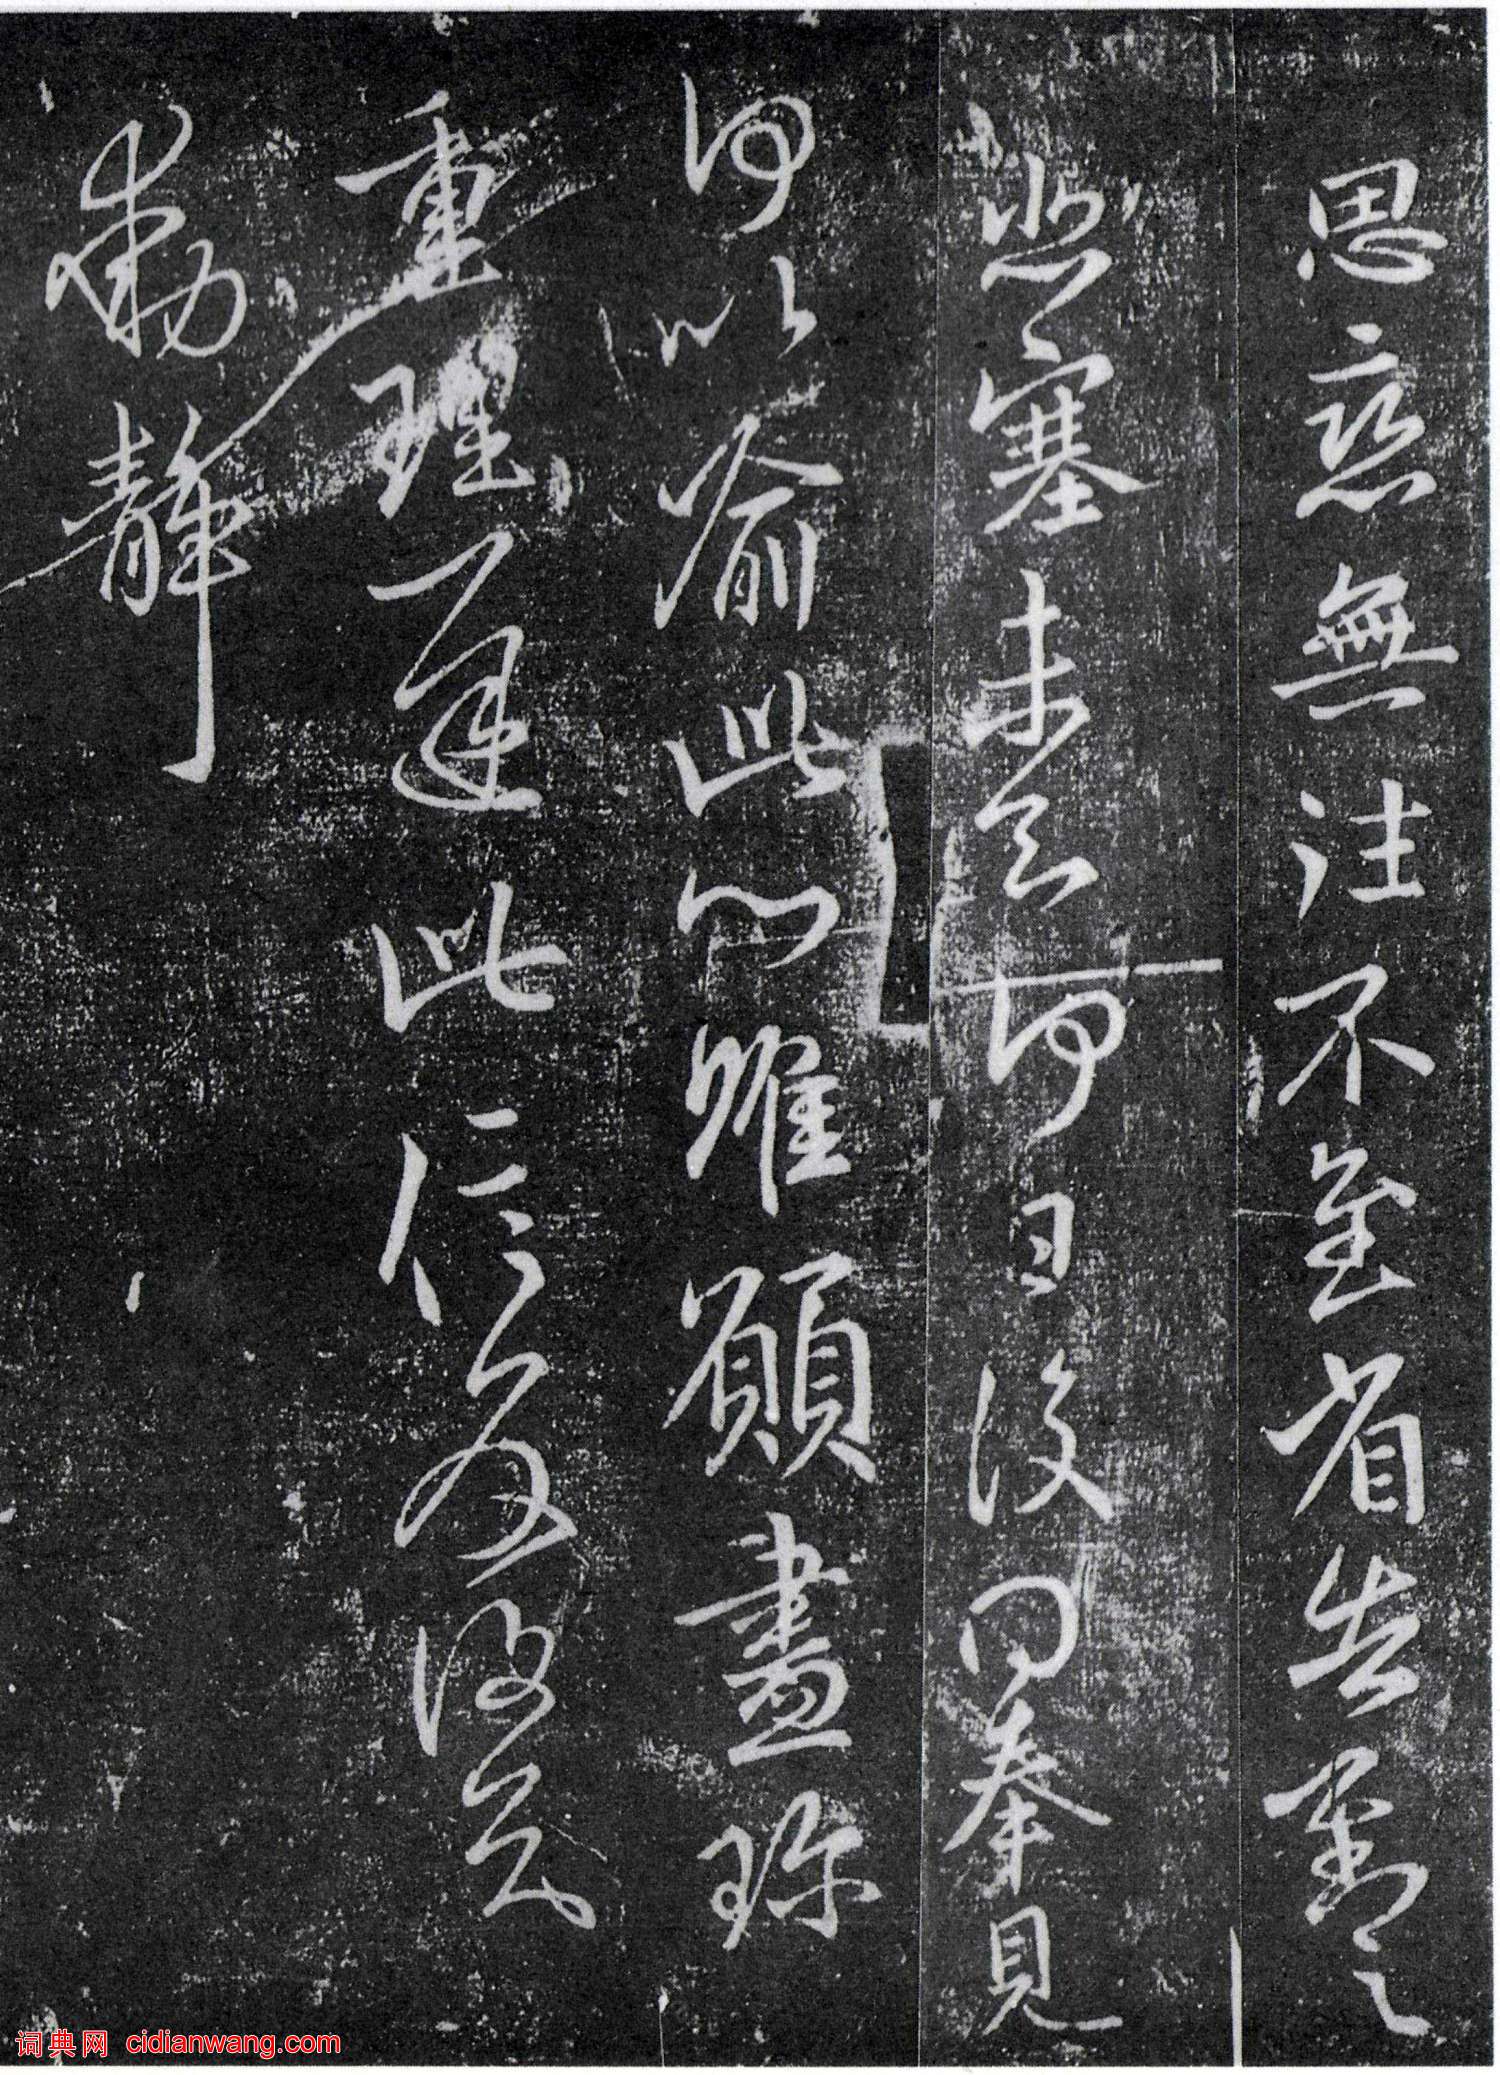 思戀無往不至省告對之
悲塞未知何日復得奉見
何以喻此心唯願盡珍
重理遲此信反復知
動靜
词典网 cidianwang.com